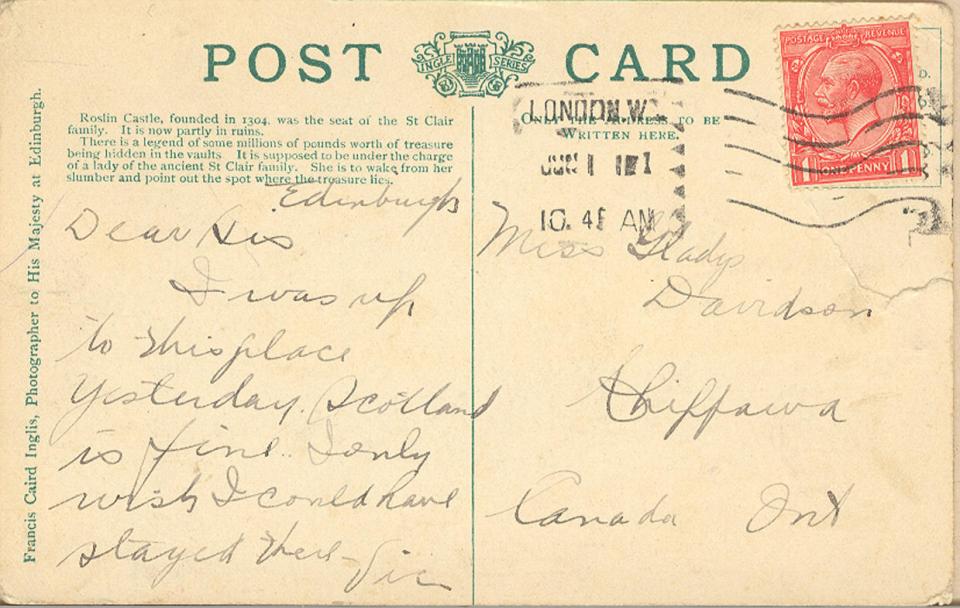 POST CARD
INGLIS SERIES
POSTAGE REVENUE
1 ONE PENNY 1
Roslin Castle, founded in 1304, was the seat of the St Clair
family. It is now partly in ruins.
There is a legend of some millions of pounds worth of treasure
being hidden in the vaults It is supposed to be under the charge
of a lady of the ancient St Clair family. She is to wake from her
slumber and point out the spot where the treasure lies.
Francis Caird Inglis, Photographer to His Majesty at Edinburgh.
Edinburgh
Dear Sis
I was up
to this place
yesterday. Scotland
is fine. I only
wish I could have
stayed there - Vic
ONLY THE ADDRESS TO BE
WRITTEN HERE.
LONDON.W.
JUN 1
AM
Miss Gladys
Davidson
Chippawa
Canada Ont